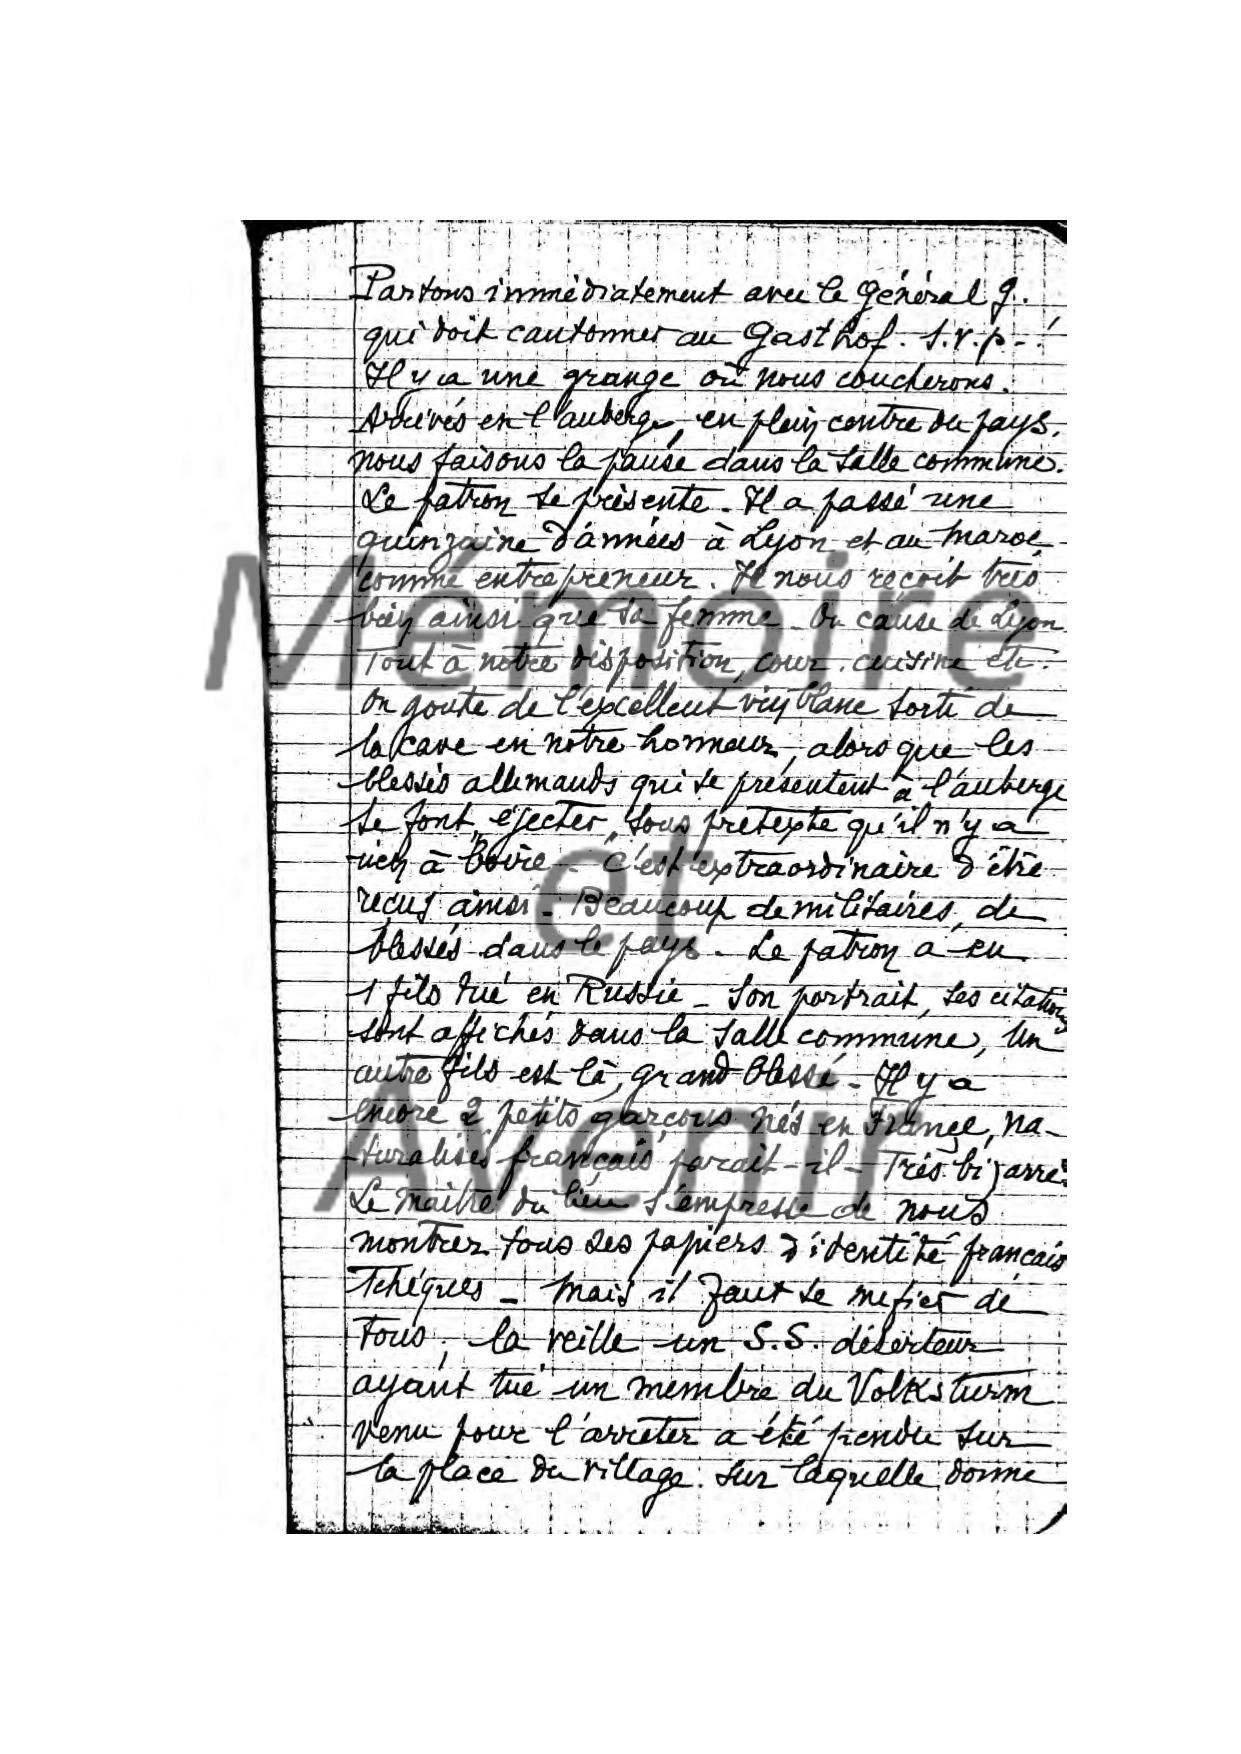 Partons immédiatement avec le général G.
qui doit cantonner au Gasthof. s.v.p - !
Il y a une grange où nous coucherons.
Arrivés en l'auberge, en plein centre du pays,
nous faisons la pause dans la salle commune.
Le patron se présente. Il a passé une
quinzaine d'années à Lyon et au Maroc
comme entrepreneur. Il nous reçoit très
bien ainsi que sa femme - On cause de Lyon
Tout à notre disposition, cour. cuisine etc.
On goute de l'excellent vin blanc sorti de
la cave en notre honneur, alors que les
blessés allemands qui se présentent à l'auberge
se font "éjecter" sous prétexte qu'il n'y a
rien à boire - C'est extraordinaire d'être
reçus ainsi - Beaucoup de militaires, de
blessés dans le pays. Le patron a eu
1 fils tué en Russie - Son portrait, ses citations
sont affichés dans la salle commune, Un
autre fils est là, grand blessé - Il y a
encore 2 petits garçons nés en France, na-
turalisés français parait-il - Très bizarre.
Le maitre du lieu s'empresse de nous
montrer tous ses papiers d'identité français
Tchèques - Mais il faut se méfier de
tous, la veille un S.S. déserteur
ayant tué un membre du Volksturm
venu pour l'arrêter a été pendu sur
la place du village. sur laquelle donne
Mémoire
et
Avenir